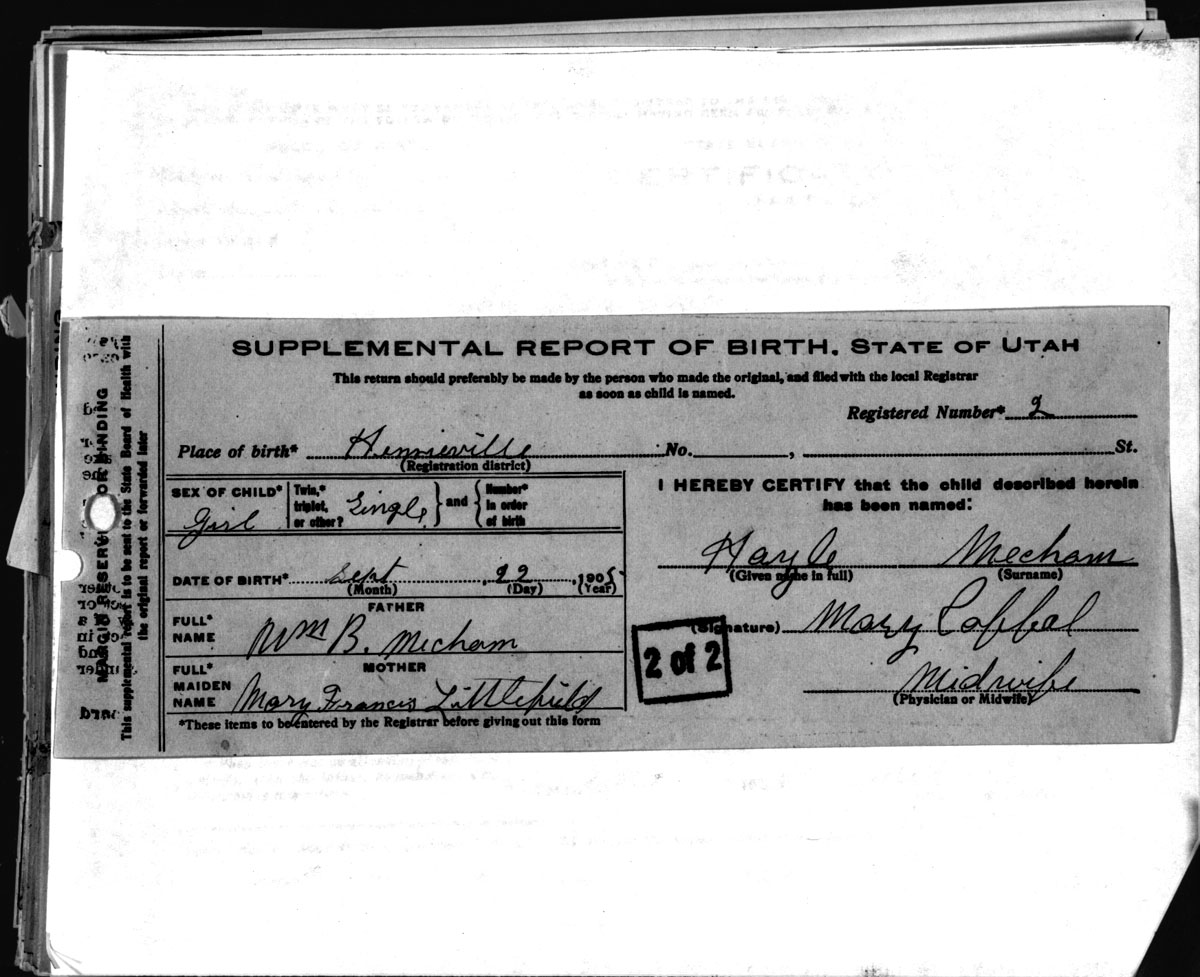 SUPPLEMENTAL REPORT OF BIRTH. STATE OF UTAH
This return should preferably be made by the person who made the original, and filed with the local Registrar
as soon as child is named.
Registered Number* 2
Place of birth* Henrieville No. , St.
(Registration district)
SEX OF CHILD*
Girl
Twin,*
triplet,
or other?
Single
and
Number*
in order
of birth
DATE OF BIRTH* Sept , 22 , 1905
(Month) (Day) (Year)
FATHER
FULL*
NAME
Wm B. Mecham
MOTHER
FULL*
MAIDEN
NAME
Mary Francis Littlefield
*These items to be entered by the Registrar before giving out this form
I HEREBY CERTIFY that the child described herein
has been named:
Hayle Mecham
(Given name in full) (Surname)
(Signature) Mary
Midwife
(Physician or Midwife)
2 of 2
MARGIN RESERVED FOR BINDING
This supplemental report is to be sent to the State Board of Health with
the original report or forwarded later